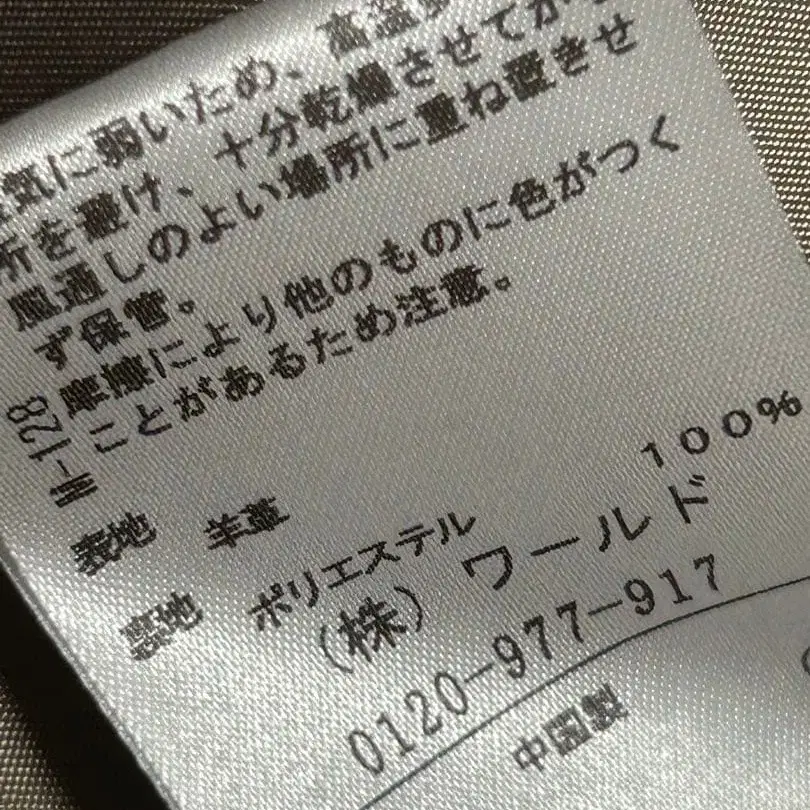 気に弱いため、高温多
所を避け、十分乾燥させてか
風通しのよい場所に重ね置きせ
ず保管。
摩擦により他のものに色がつく
ことがあるため注意。
W-128
表地 羊革
裏地 ポリエステル 100%
(株) ワールド
0120-977-917
中国製